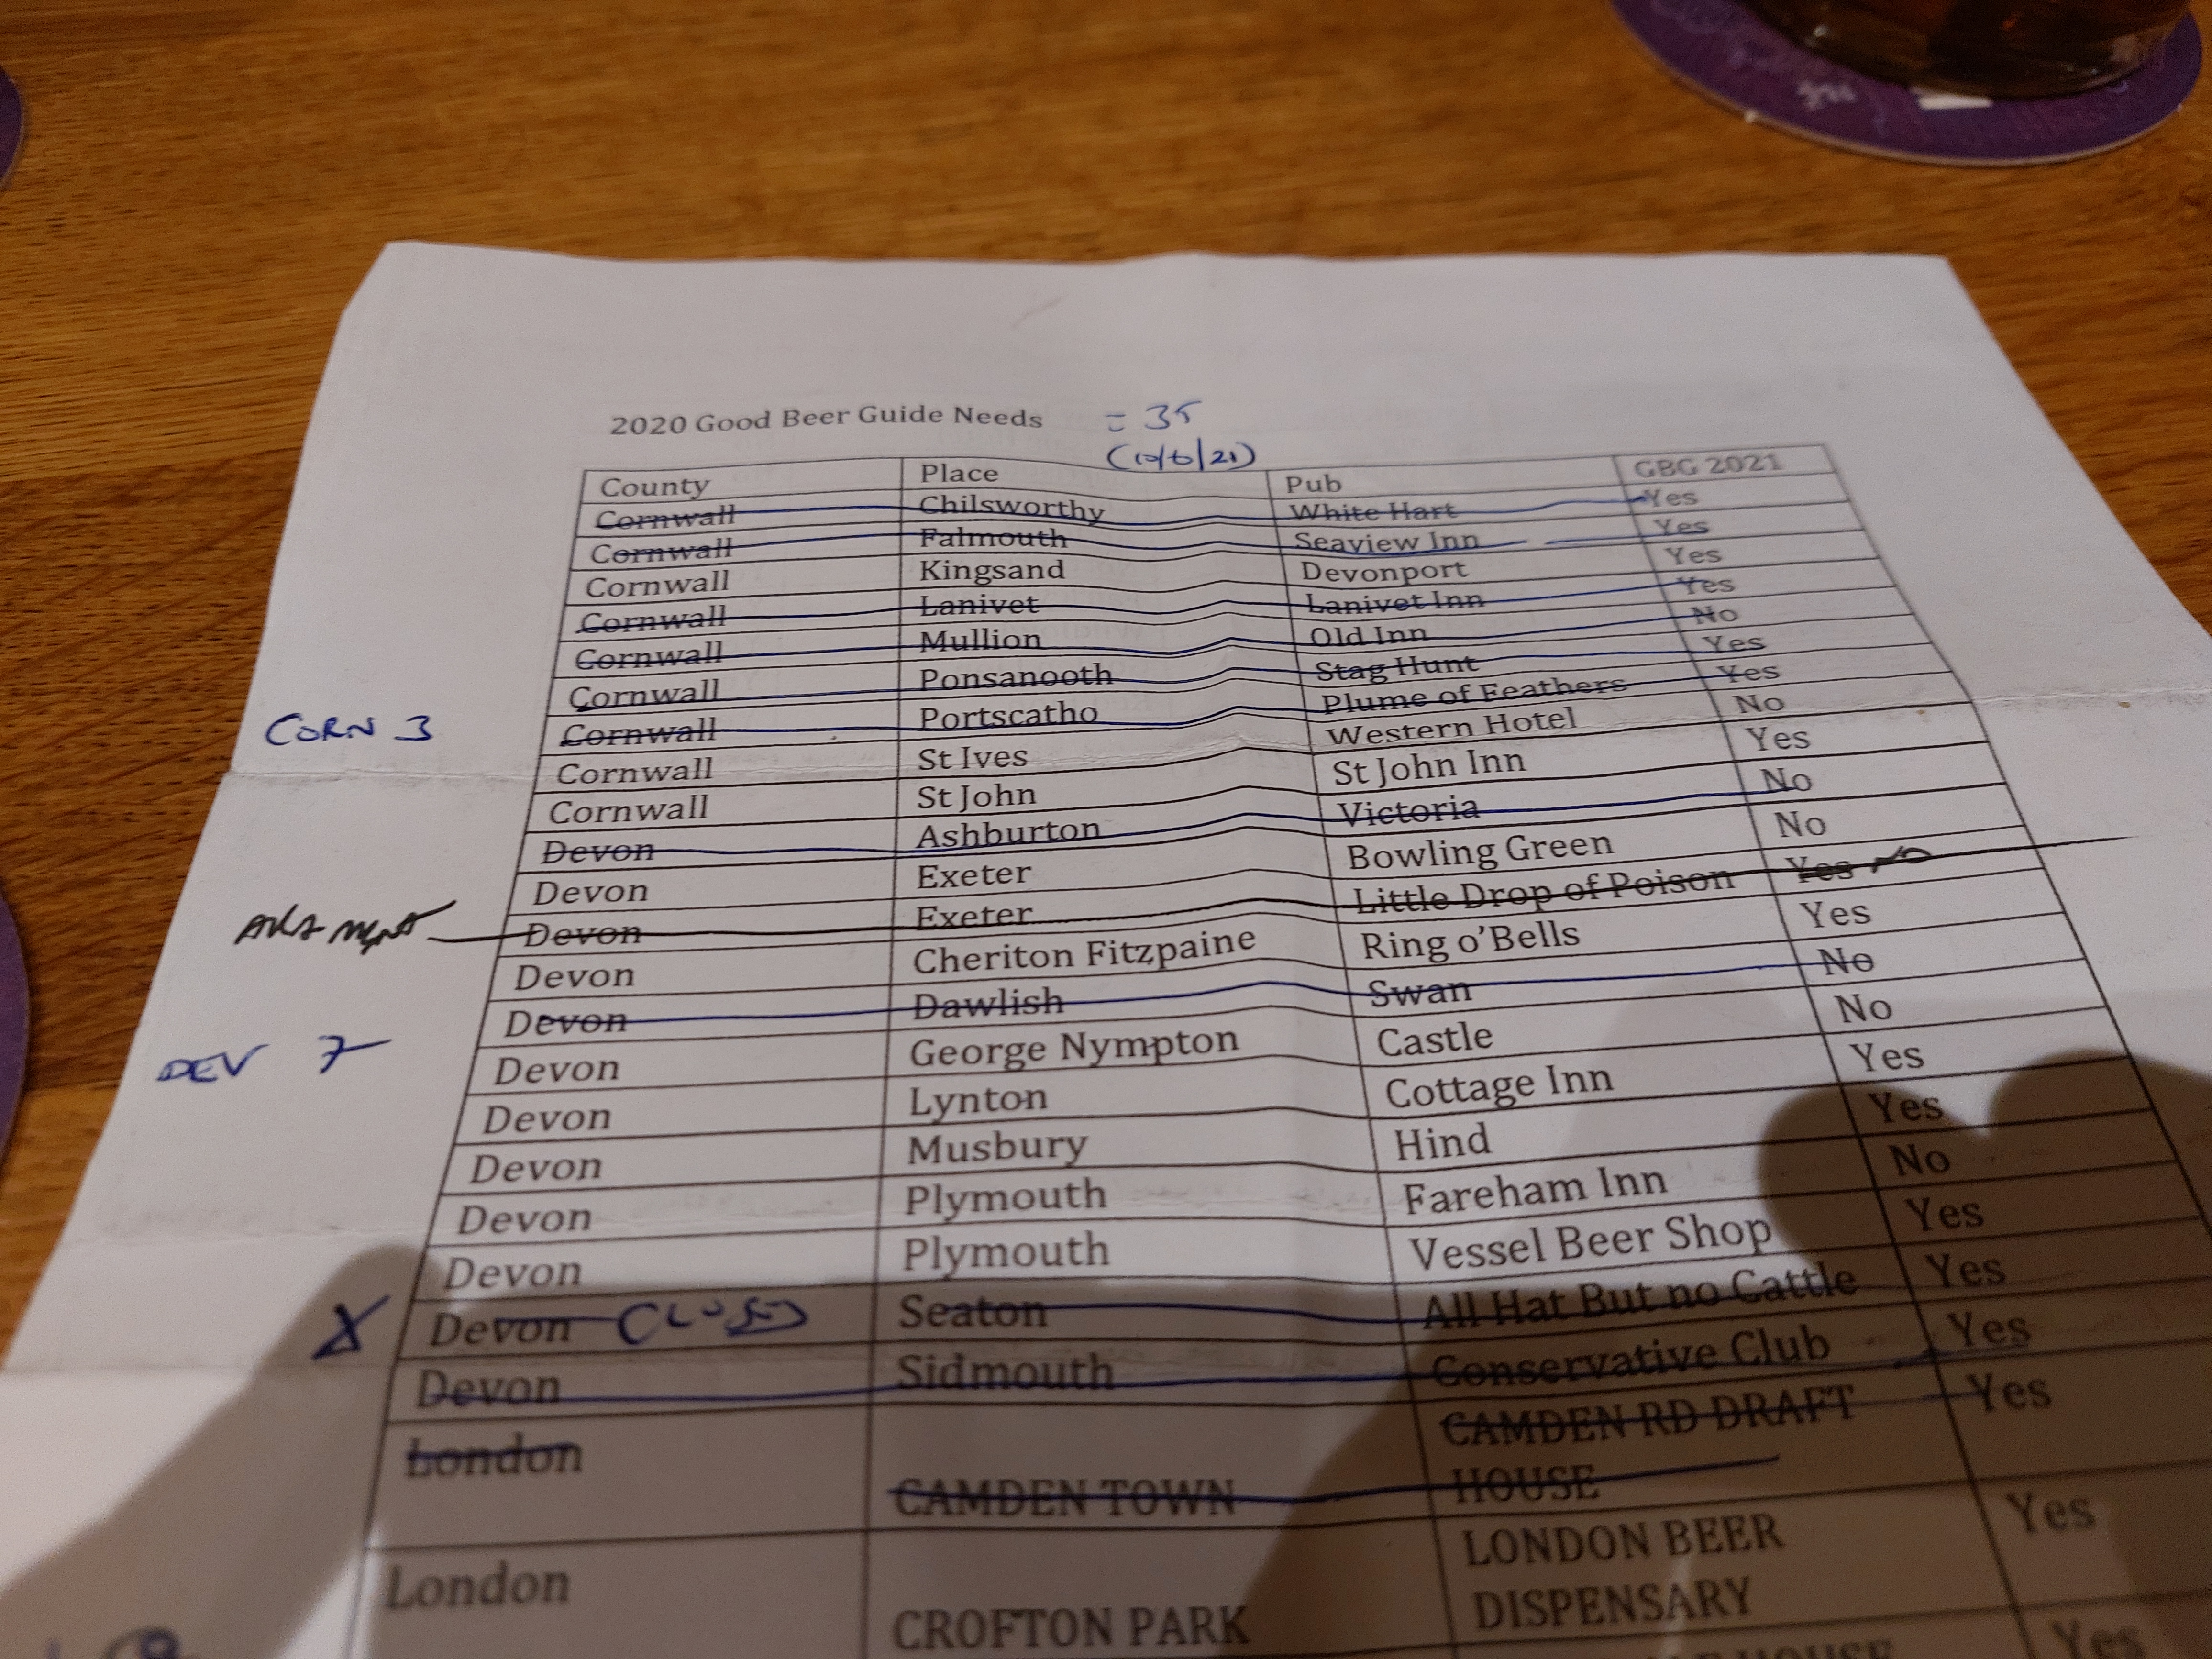 2020 Good Beer Guide Needs = 35
(10/6/21)
County Place Pub GBG 2021
Cornwall Chilsworthy White Hart Yes
Cornwall Falmouth Seaview Inn Yes
Cornwall Kingsand Devonport Yes
Cornwall Lanivet Lanivet Inn Yes
Cornwall Mullion Old Inn No
Cornwall Ponsanooth Stag Hunt Yes
Cornwall Portscatho Plume of Feathers Yes
CORN 3
Cornwall St Ives Western Hotel No
Cornwall St John St John Inn Yes
Devon Ashburton Victoria No
Devon Exeter Bowling Green No
Devon Exeter Little Drop of Poison Yes NO
Devon Cheriton Fitzpaine Ring o'Bells Yes
Devon Dawlish Swan No
DEV 7
Devon George Nympton Castle No
Devon Lynton Cottage Inn Yes
Devon Musbury Hind Yes
Devon Plymouth Fareham Inn No
Devon Plymouth Vessel Beer Shop Yes
X Devon CLOSED Seaton All Hat But no Cattle Yes
Devon Sidmouth Conservative Club Yes
London CAMDEN TOWN CAMDEN RD DRAFT HOUSE Yes
London CROFTON PARK LONDON BEER DISPENSARY Yes
HOUSE Yes